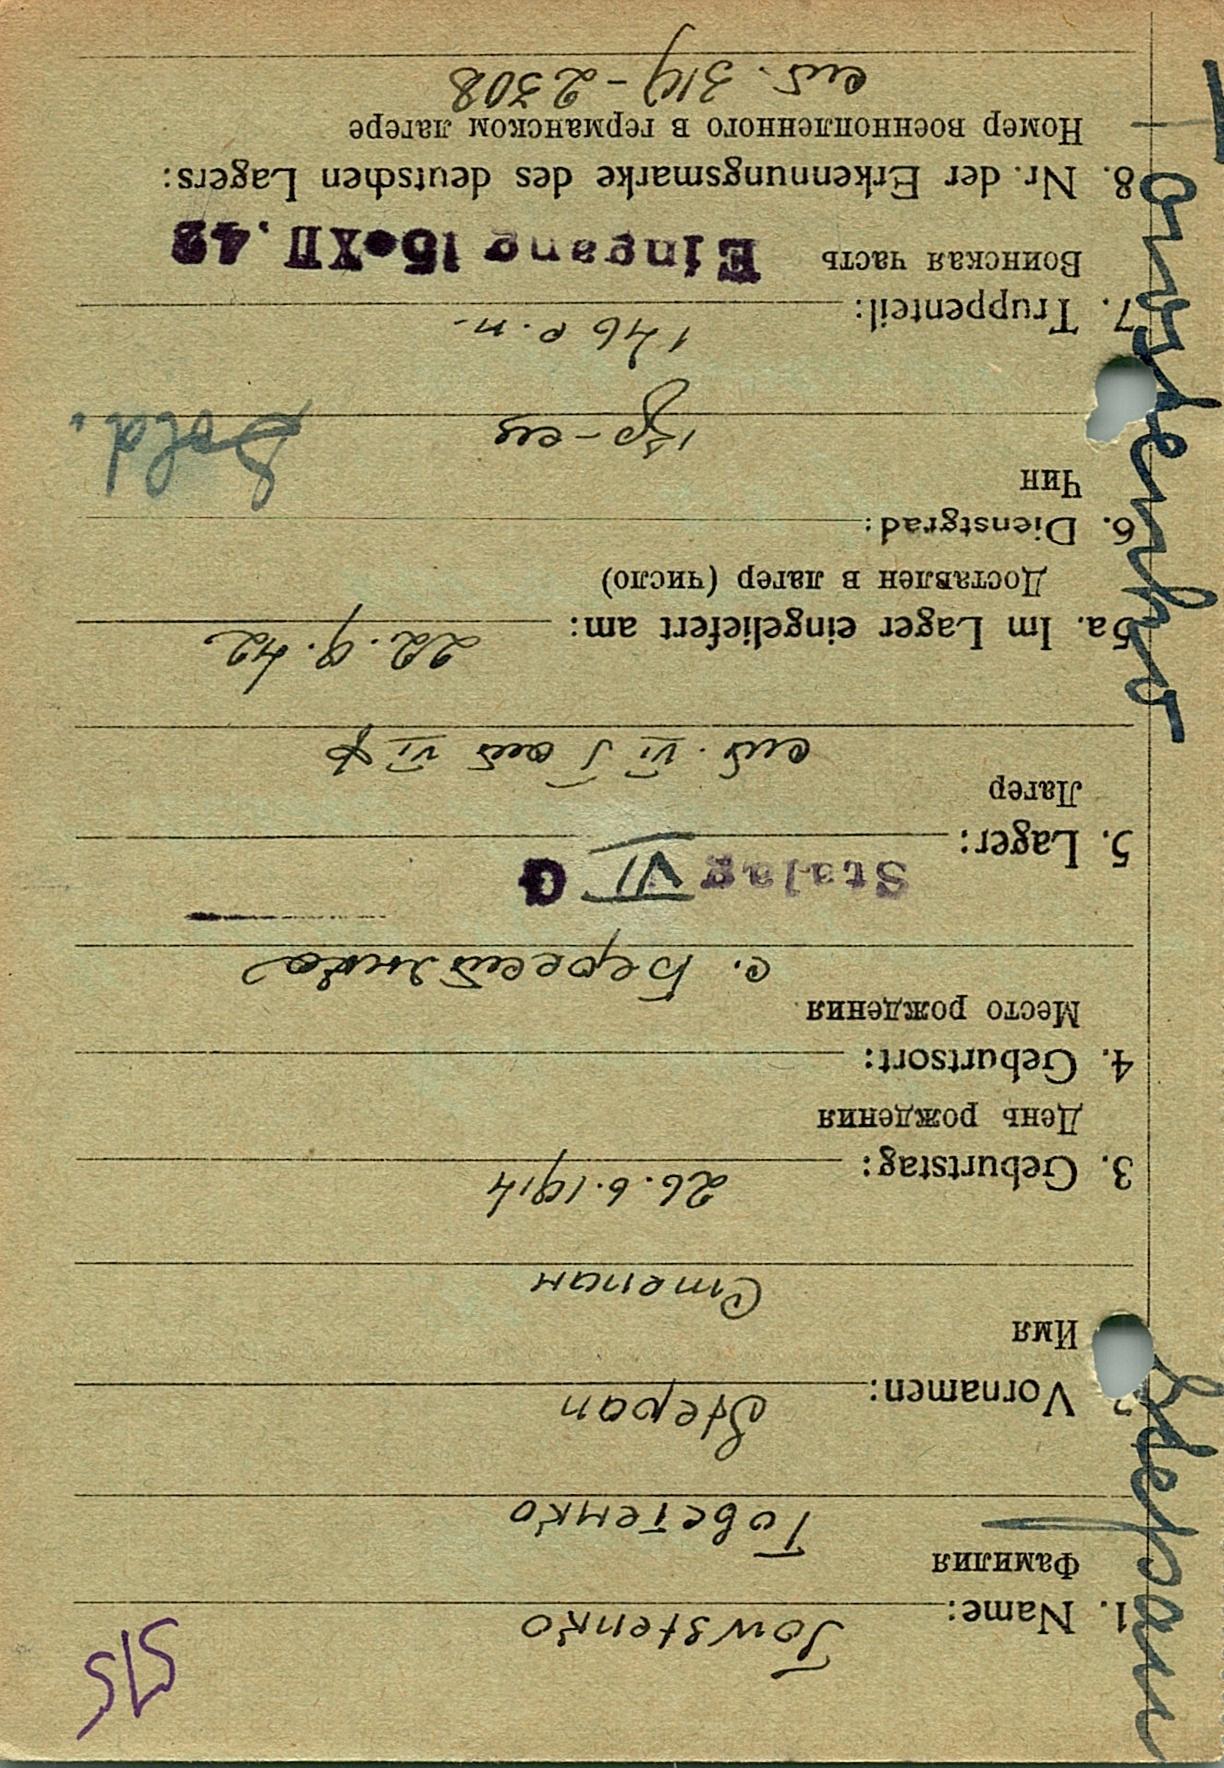 515
Towstenko
1. Name:
Фамилия
Товстенко
Stepan
2. Vornamen:
Имя
Степан
26.6.1914
3. Geburtstag:
День рождения
4. Geburtsort:
Место рождения
с.
Stalag VI G
5. Lager:
Лагер
шт. VI
5a. Im Lager eingeliefert am: 22.9.42
Доставлен в лагер (число)
6. Dienstgrad:
Чин
Sold.
кр-ец
146 с.п.
7. Truppenteil:
Воинская часть
Eingang 15.XII.42
8. Nr. der Erkennungsmarke des deutschen Lagers:
Номер военнопленного в германском лагере
шт. 314-2308
Towstenko Stepan